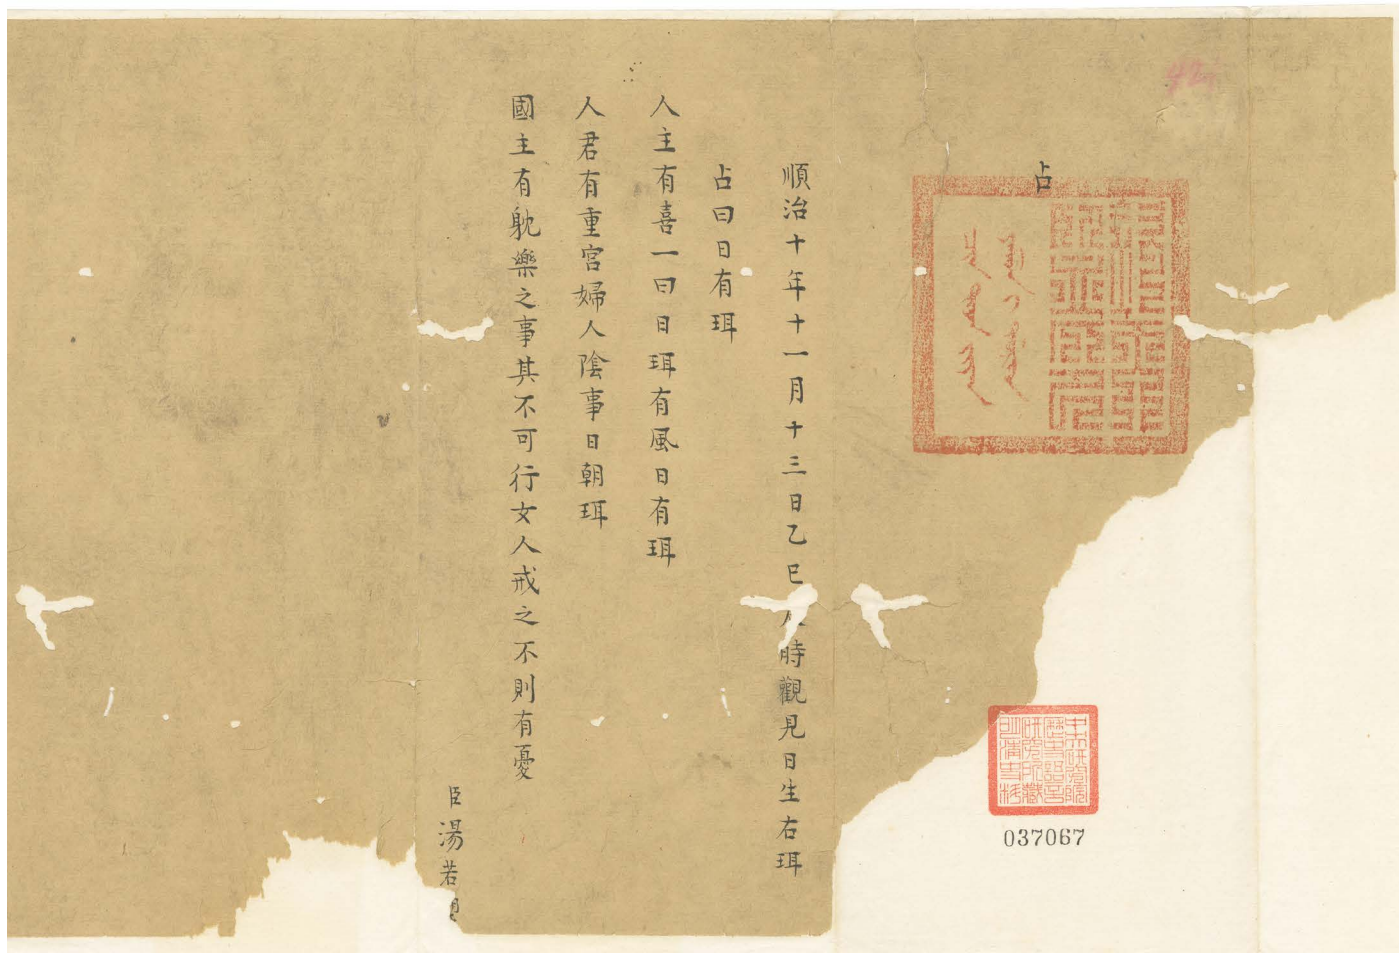 占
順治十年十一月十三日乙巳時觀見日生右珥
占曰日有珥
人主有喜一曰日珥有風日有珥
人君有重宮婦人陰事日朝珥
國主有躭樂之事其不可行女人戒之不則有憂
臣湯若望
中央研究院
歷史語言
研究所藏
明清史料
037067